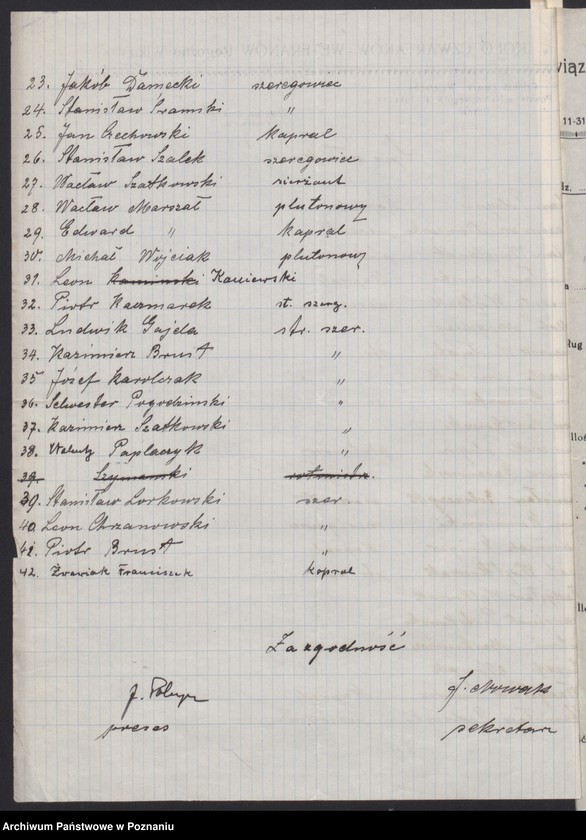 23. Jakób Damecki szeregowiec
24. Stanisław Sramski "
25. Jan Czechowski kapral
26. Stanisław Szalek szeregowiec
27. Wacław Szatkowski sierżant
28. Wacław Marszał plutonowy
29. Edward " kapral
30. Michał Wójciak plutonowy
31. Leon Kaminski Kaniewski
32. Piotr Kaczmarek st. szereg.
33. Ludwik Gajda str. szer.
34. Kazimierz Brust "
35 Józef Karolczak "
36. Selwester Pogodzinski "
37. Kazimierz Szatkowski "
38. Walenty Paplaczyk "
39. Szymanski
39. Stanisław Lorkowski szer.
40. Leon Chrzanowski "
41. Piotr Brust "
42. Franciszek kapral
Za zgodność
J. Nowak
preses sekretarz
wiąz
11-31
dz.
a
ług
Archiwum Państwowe w Poznaniu